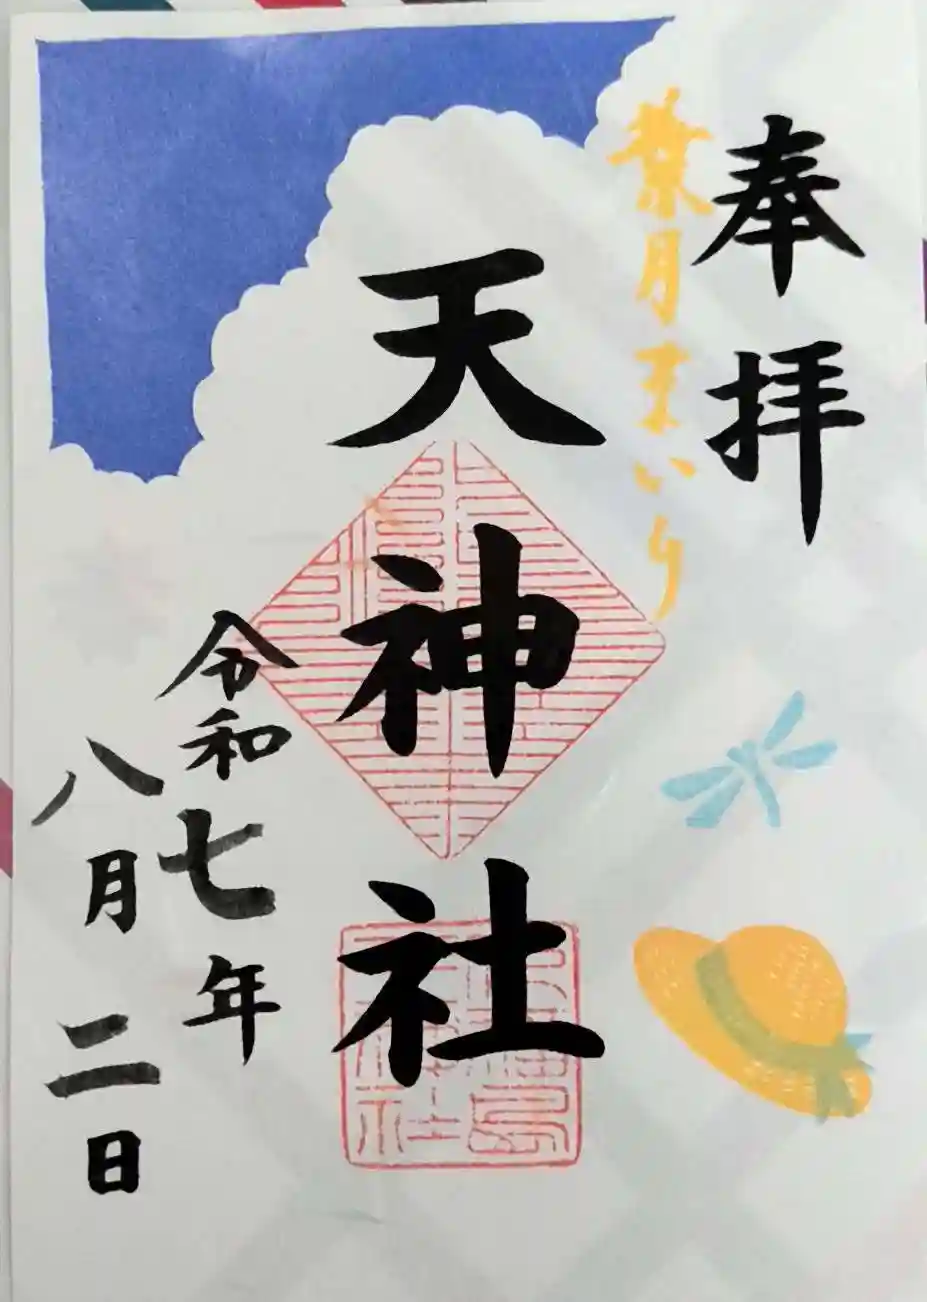 奉拝
葉月まいり
天神社
令和七年
八月二日